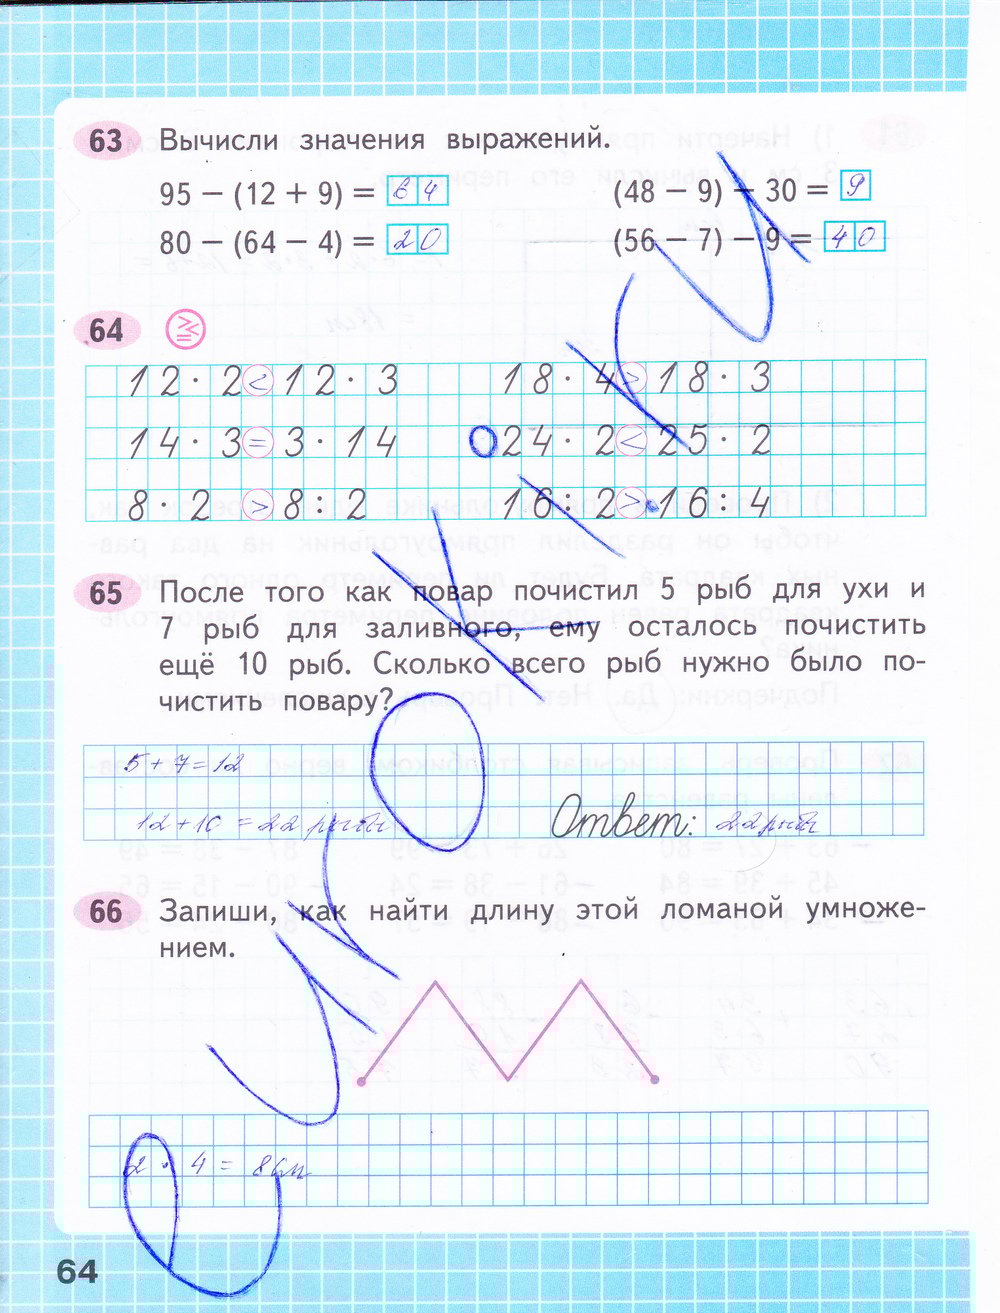 63 Вычисли значения выражений.
95 − (12 + 9) = 64 (48 − 9) − 30 = 9
80 − (64 − 4) = 20 (56 − 7) − 9 = 40
64
12 · 2 < 12 · 3 18 · 4 > 18 · 3
14 · 3 = 3 · 14 24 · 2 < 25 · 2
8 · 2 > 8 : 2 16 : 2 > 16 : 4
65 После того как повар почистил 5 рыб для ухи и
7 рыб для заливного, ему осталось почистить
ещё 10 рыб. Сколько всего рыб нужно было по-
чистить повару?
5 + 7 = 12
12 + 10 = 22 рыбы Ответ: 22 рыбы
66 Запиши, как найти длину этой ломаной умноже-
нием.
2 · 4 = 8 см
64